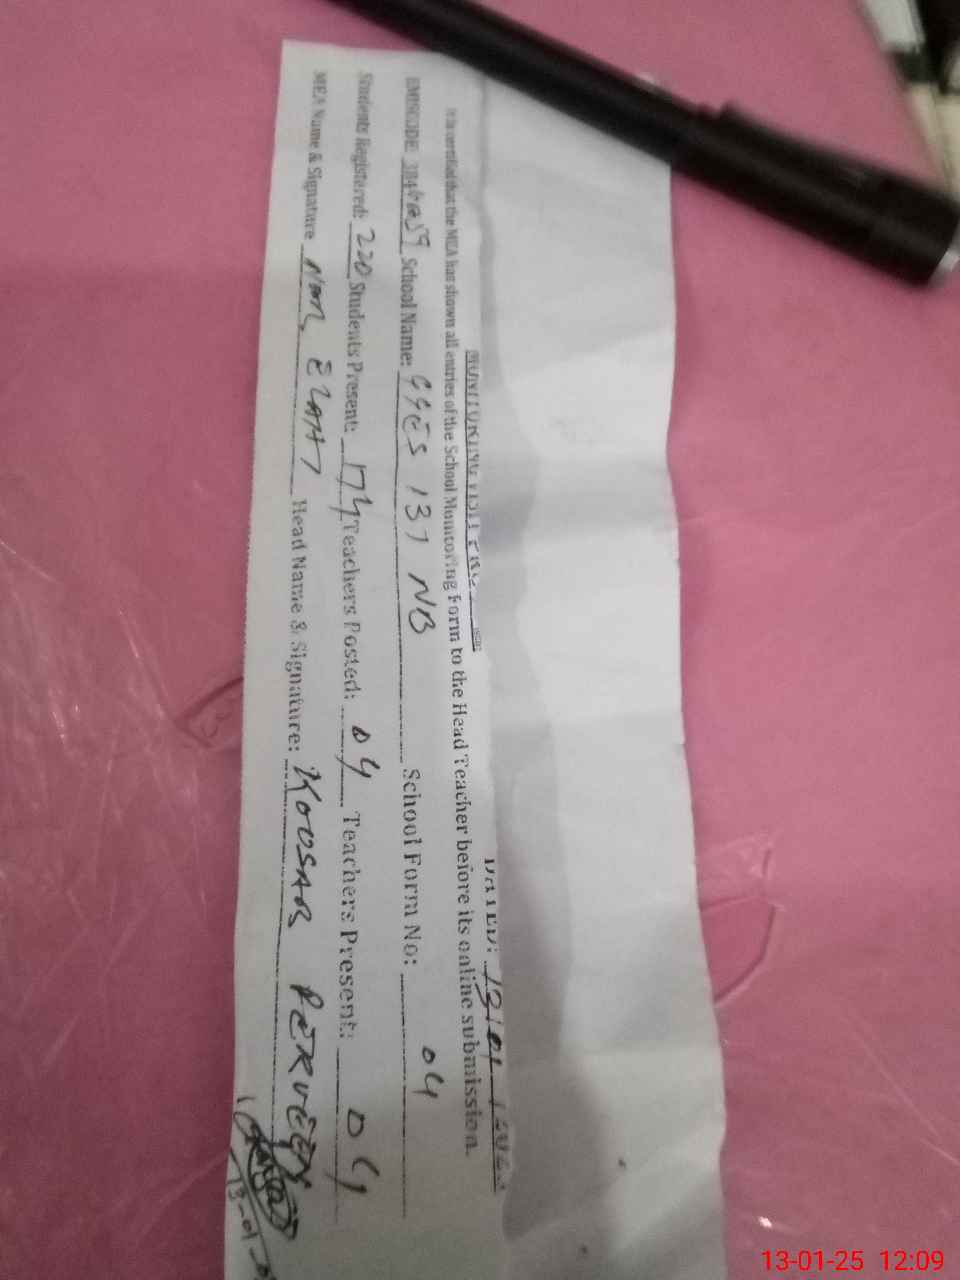 DATED: 13/01/
It is certified that the MEA has shown all entries of the School Monitoring Form to the Head Teacher before its online submission.
EMISCODE: School Name: GGES 137 NB School Form No: 04
Students Registered: 220 Students Present: 174 Teachers Posted: 04 Teachers Present: 04
MEA Name & Signature NOOR ELAHI Head Name & Signature: KOUSAR PERVEEN
13-01-25 12:09